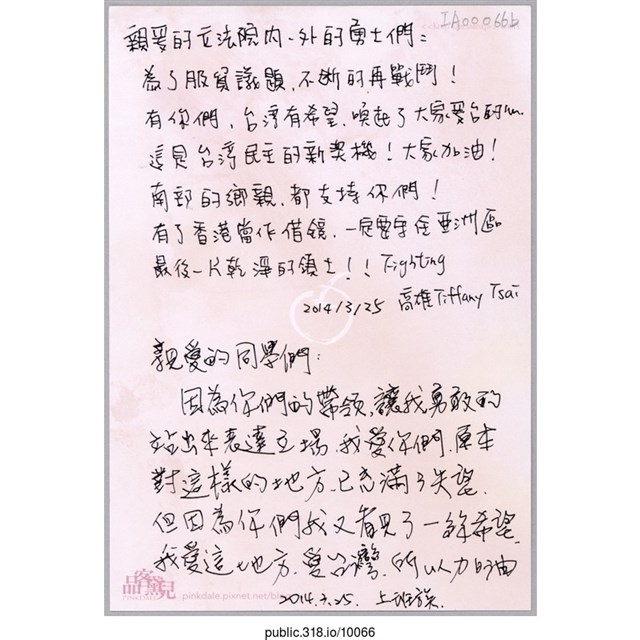 IA00066b
親愛的立法院內、外的勇士們:
為了服貿議題,不斷的再戰鬥!
有你們,台湾有希望,喚起了大家愛台的
這是台湾民主的新契機!大家加油!
南部的鄉親,都支持你們!
有了香港當作借鏡,一定要守住亞洲區
最後一片乾淨的領土!! Fighting
2014/3/25 高雄Tiffany Tsai
親愛的同學們:
因為你們的帶領,讓我勇敢的
站出來表達立場,我愛你們,原本
對這樣的地方,已充滿了失望,
但因為你們我又看見了一線希望,
我愛這地方,愛台灣,所以加油
2014.3.25. 上班族
品客黛兒
PINKDALE
pinkdale.pixnet.net/blog
public.318.io/10066